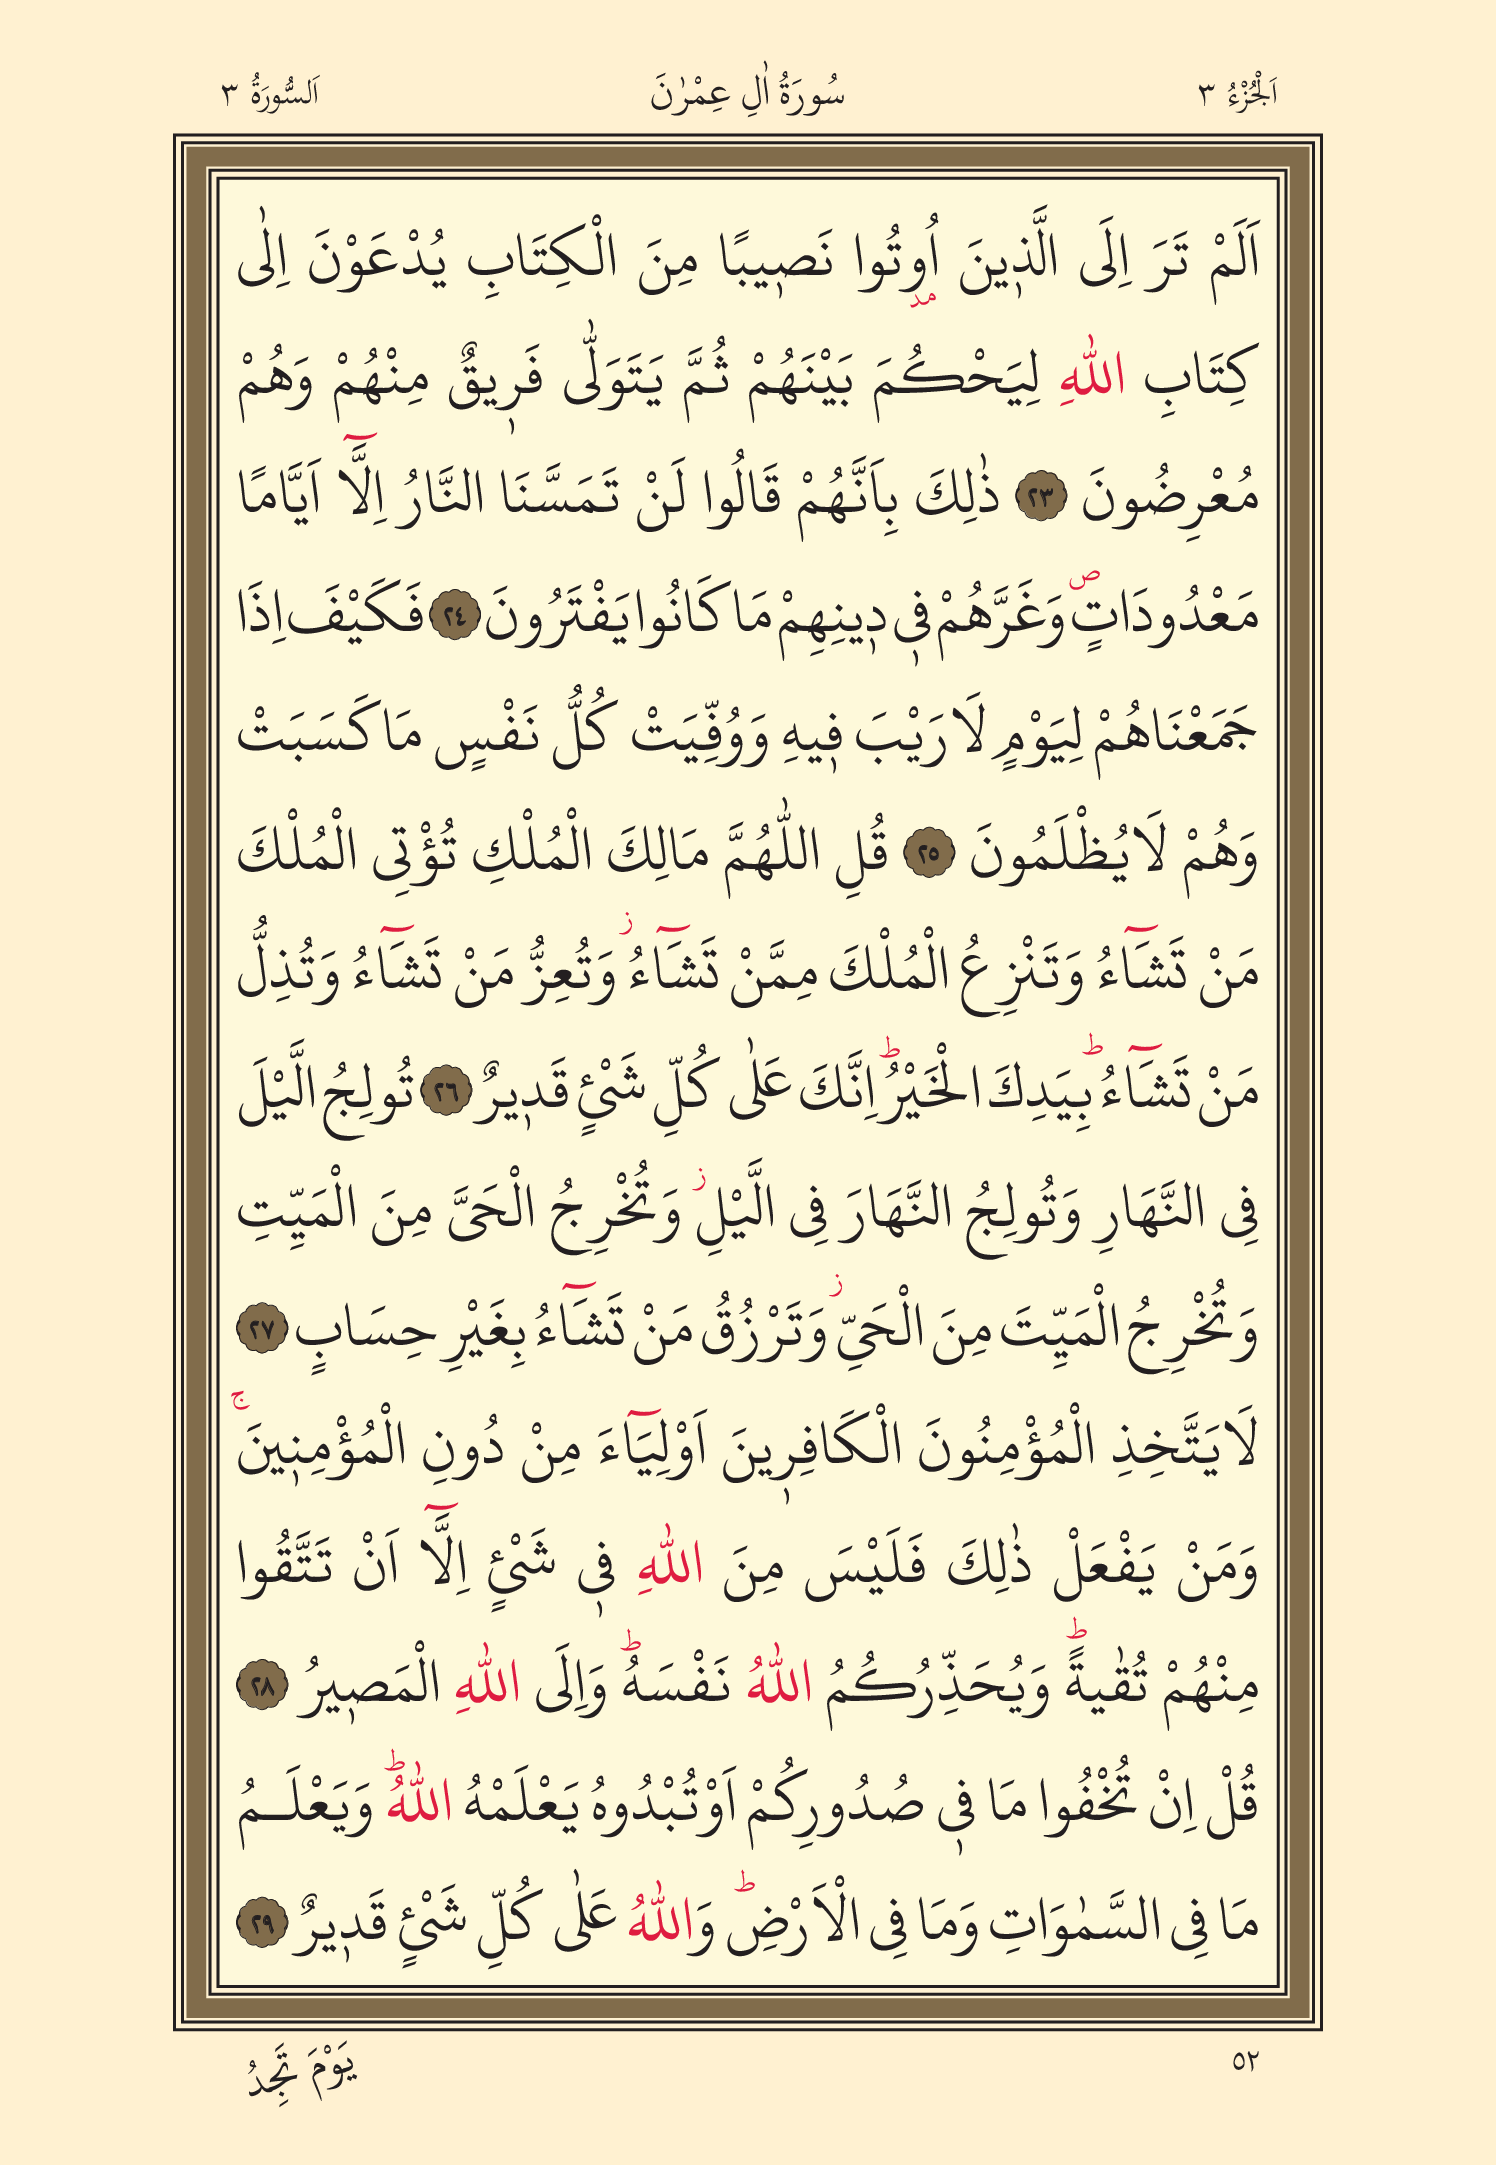 اَلْجُزْءُ ٣ سُورَةُ اٰلِ عِمْرٰنَ اَلسُّورَةُ ٣
اَلَمْ تَرَ اِلَى الَّذ۪ينَ اُو۫تُوا نَص۪يبًا مِنَ الْكِتَابِ يُدْعَوْنَ اِلٰى
كِتَابِ اللّٰهِ لِيَحْكُمَ بَيْنَهُمْ ثُمَّ يَتَوَلّٰى فَر۪يقٌ مِنْهُمْ وَهُمْ
مُعْرِضُونَ ﴿٢٣﴾ ذٰلِكَ بِاَنَّهُمْ قَالُوا لَنْ تَمَسَّنَا النَّارُ اِلَّٓا اَيَّامًا
مَعْدُودَاتٍۖ وَغَرَّهُمْ ف۪ي د۪ينِهِمْ مَا كَانُوا يَفْتَرُونَ ﴿٢٤﴾ فَكَيْفَ اِذَا
جَمَعْنَاهُمْ لِيَوْمٍ لَا رَيْبَ ف۪يهِ وَوُفِّيَتْ كُلُّ نَفْسٍ مَا كَسَبَتْ
وَهُمْ لَا يُظْلَمُونَ ﴿٢٥﴾ قُلِ اللّٰهُمَّ مَالِكَ الْمُلْكِ تُؤْتِي الْمُلْكَ
مَنْ تَشَٓاءُ وَتَنْزِعُ الْمُلْكَ مِمَّنْ تَشَٓاءُۘ وَتُعِزُّ مَنْ تَشَٓاءُ وَتُذِلُّ
مَنْ تَشَٓاءُۜ بِيَدِكَ الْخَيْرُۜ اِنَّكَ عَلٰى كُلِّ شَيْءٍ قَد۪يرٌ ﴿٢٦﴾ تُولِجُ الَّيْلَ
فِي النَّهَارِ وَتُولِجُ النَّهَارَ فِي الَّيْلِۘ وَتُخْرِجُ الْحَيَّ مِنَ الْمَيِّتِ
وَتُخْرِجُ الْمَيِّتَ مِنَ الْحَيِّۘ وَتَرْزُقُ مَنْ تَشَٓاءُ بِغَيْرِ حِسَابٍ ﴿٢٧﴾
لَا يَتَّخِذِ الْمُؤْمِنُونَ الْكَافِر۪ينَ اَوْلِيَٓاءَ مِنْ دُونِ الْمُؤْمِن۪ينَۚ
وَمَنْ يَفْعَلْ ذٰلِكَ فَلَيْسَ مِنَ اللّٰهِ ف۪ي شَيْءٍ اِلَّٓا اَنْ تَتَّقُوا
مِنْهُمْ تُقٰيةًۜ وَيُحَذِّرُكُمُ اللّٰهُ نَفْسَهُۜ وَاِلَى اللّٰهِ الْمَص۪يرُ ﴿٢٨﴾
قُلْ اِنْ تُخْفُوا مَا ف۪ي صُدُورِكُمْ اَوْ تُبْدُوهُ يَعْلَمْهُ اللّٰهُۜ وَيَعْلَمُ
مَا فِي السَّمٰوَاتِ وَمَا فِي الْاَرْضِۜ وَاللّٰهُ عَلٰى كُلِّ شَيْءٍ قَد۪يرٌ ﴿٢٩﴾
٥٢ يَوْمَ تَجِدُ